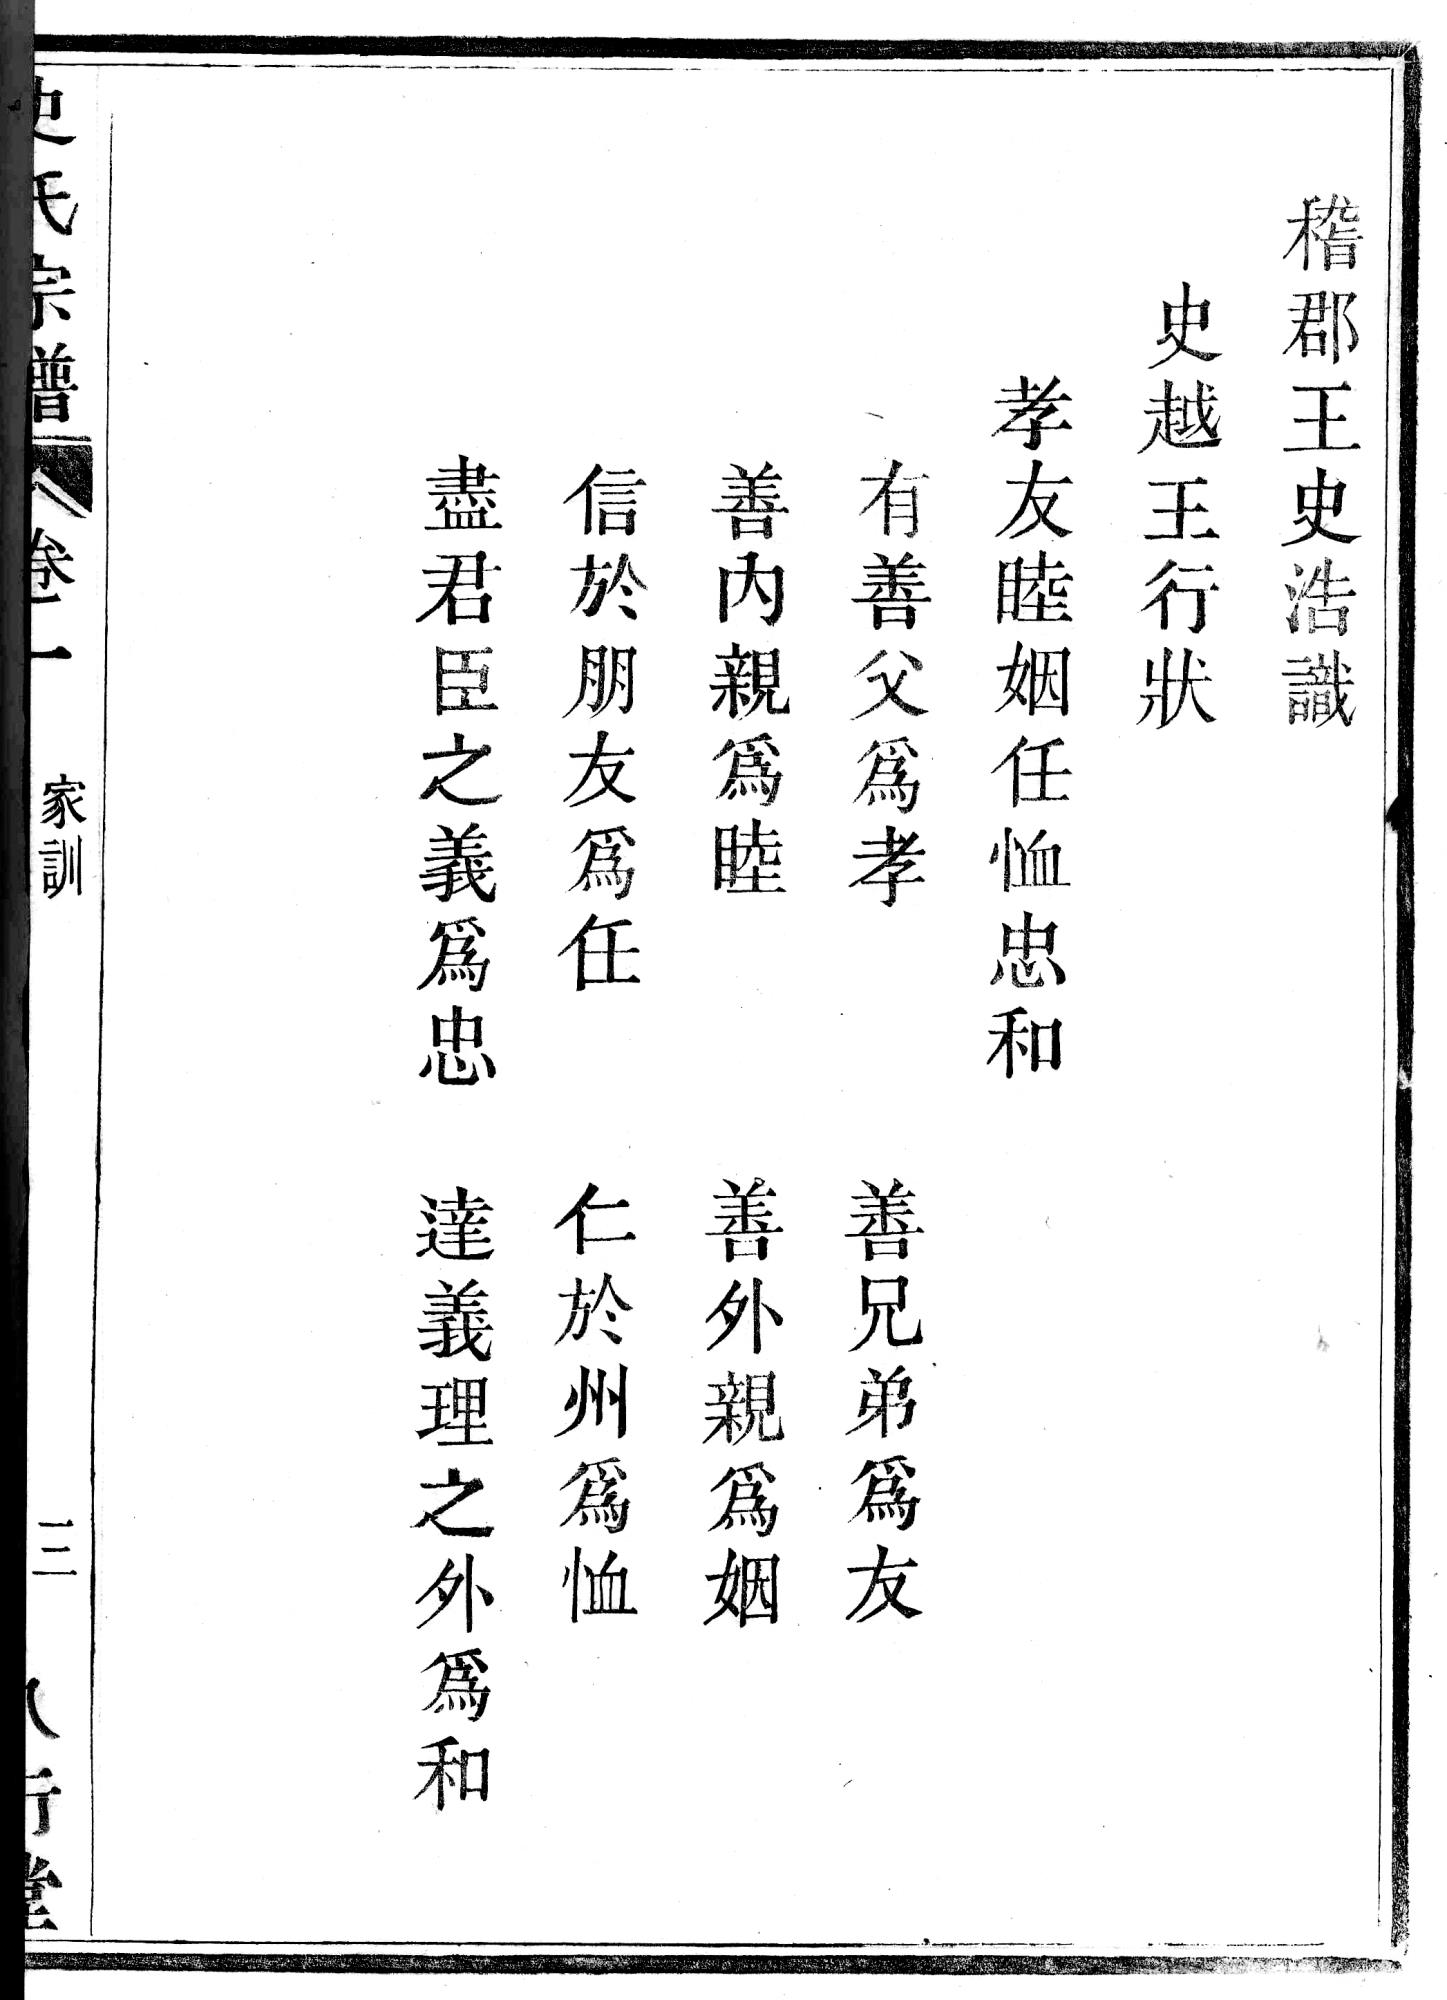 稽郡王史浩識
史越王行狀
孝友睦姻任恤忠和
有善父爲孝　善兄弟爲友
善內親爲睦　善外親爲姻
信於朋友爲任　仁於州爲恤
盡君臣之義爲忠　達義理之外爲和
史氏宗譜　卷一　家訓　三　八行堂